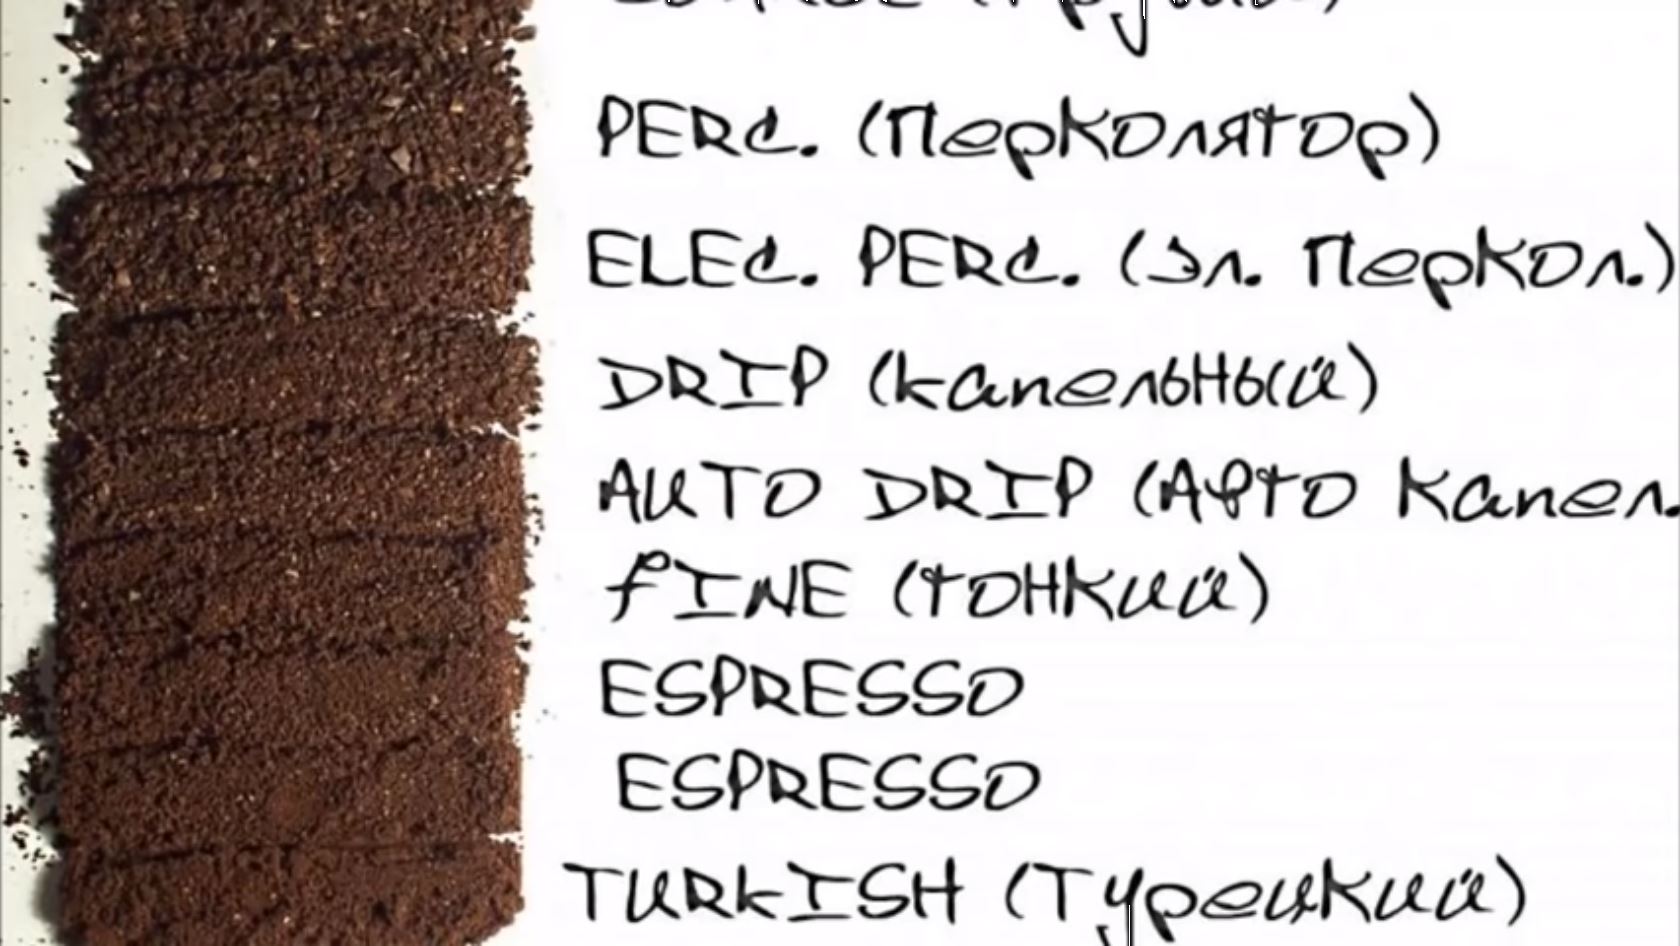 PERC. (Перколятор)
ELEC. PERC. (Эл. Перкол.)
DRIP (капельный)
AUTO DRIP (Авто Капел.
FINE (тонкий)
ESPRESSO
ESPRESSO
TURKISH (Турецкий)